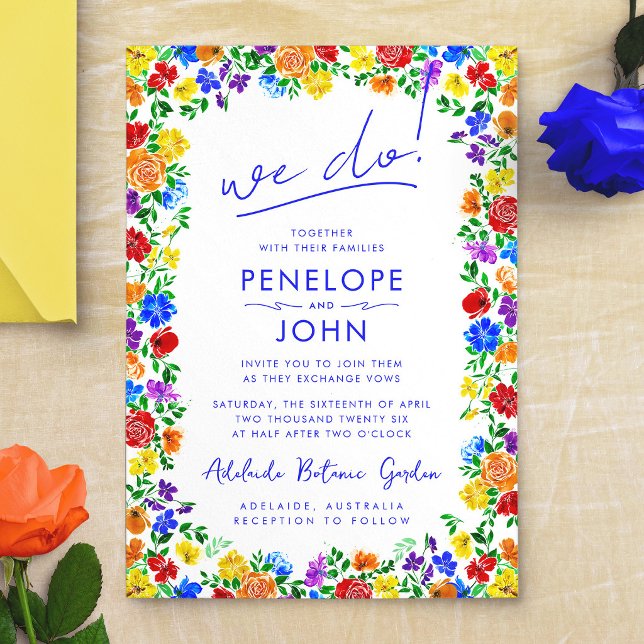 we do!
TOGETHER
WITH THEIR FAMILIES
PENELOPE
AND
JOHN
INVITE YOU TO JOIN THEM
AS THEY EXCHANGE VOWS
SATURDAY, THE SIXTEENTH OF APRIL
TWO THOUSAND TWENTY SIX
AT HALF AFTER TWO O'CLOCK
Adelaide Botanic Garden
ADELAIDE, AUSTRALIA
RECEPTION TO FOLLOW